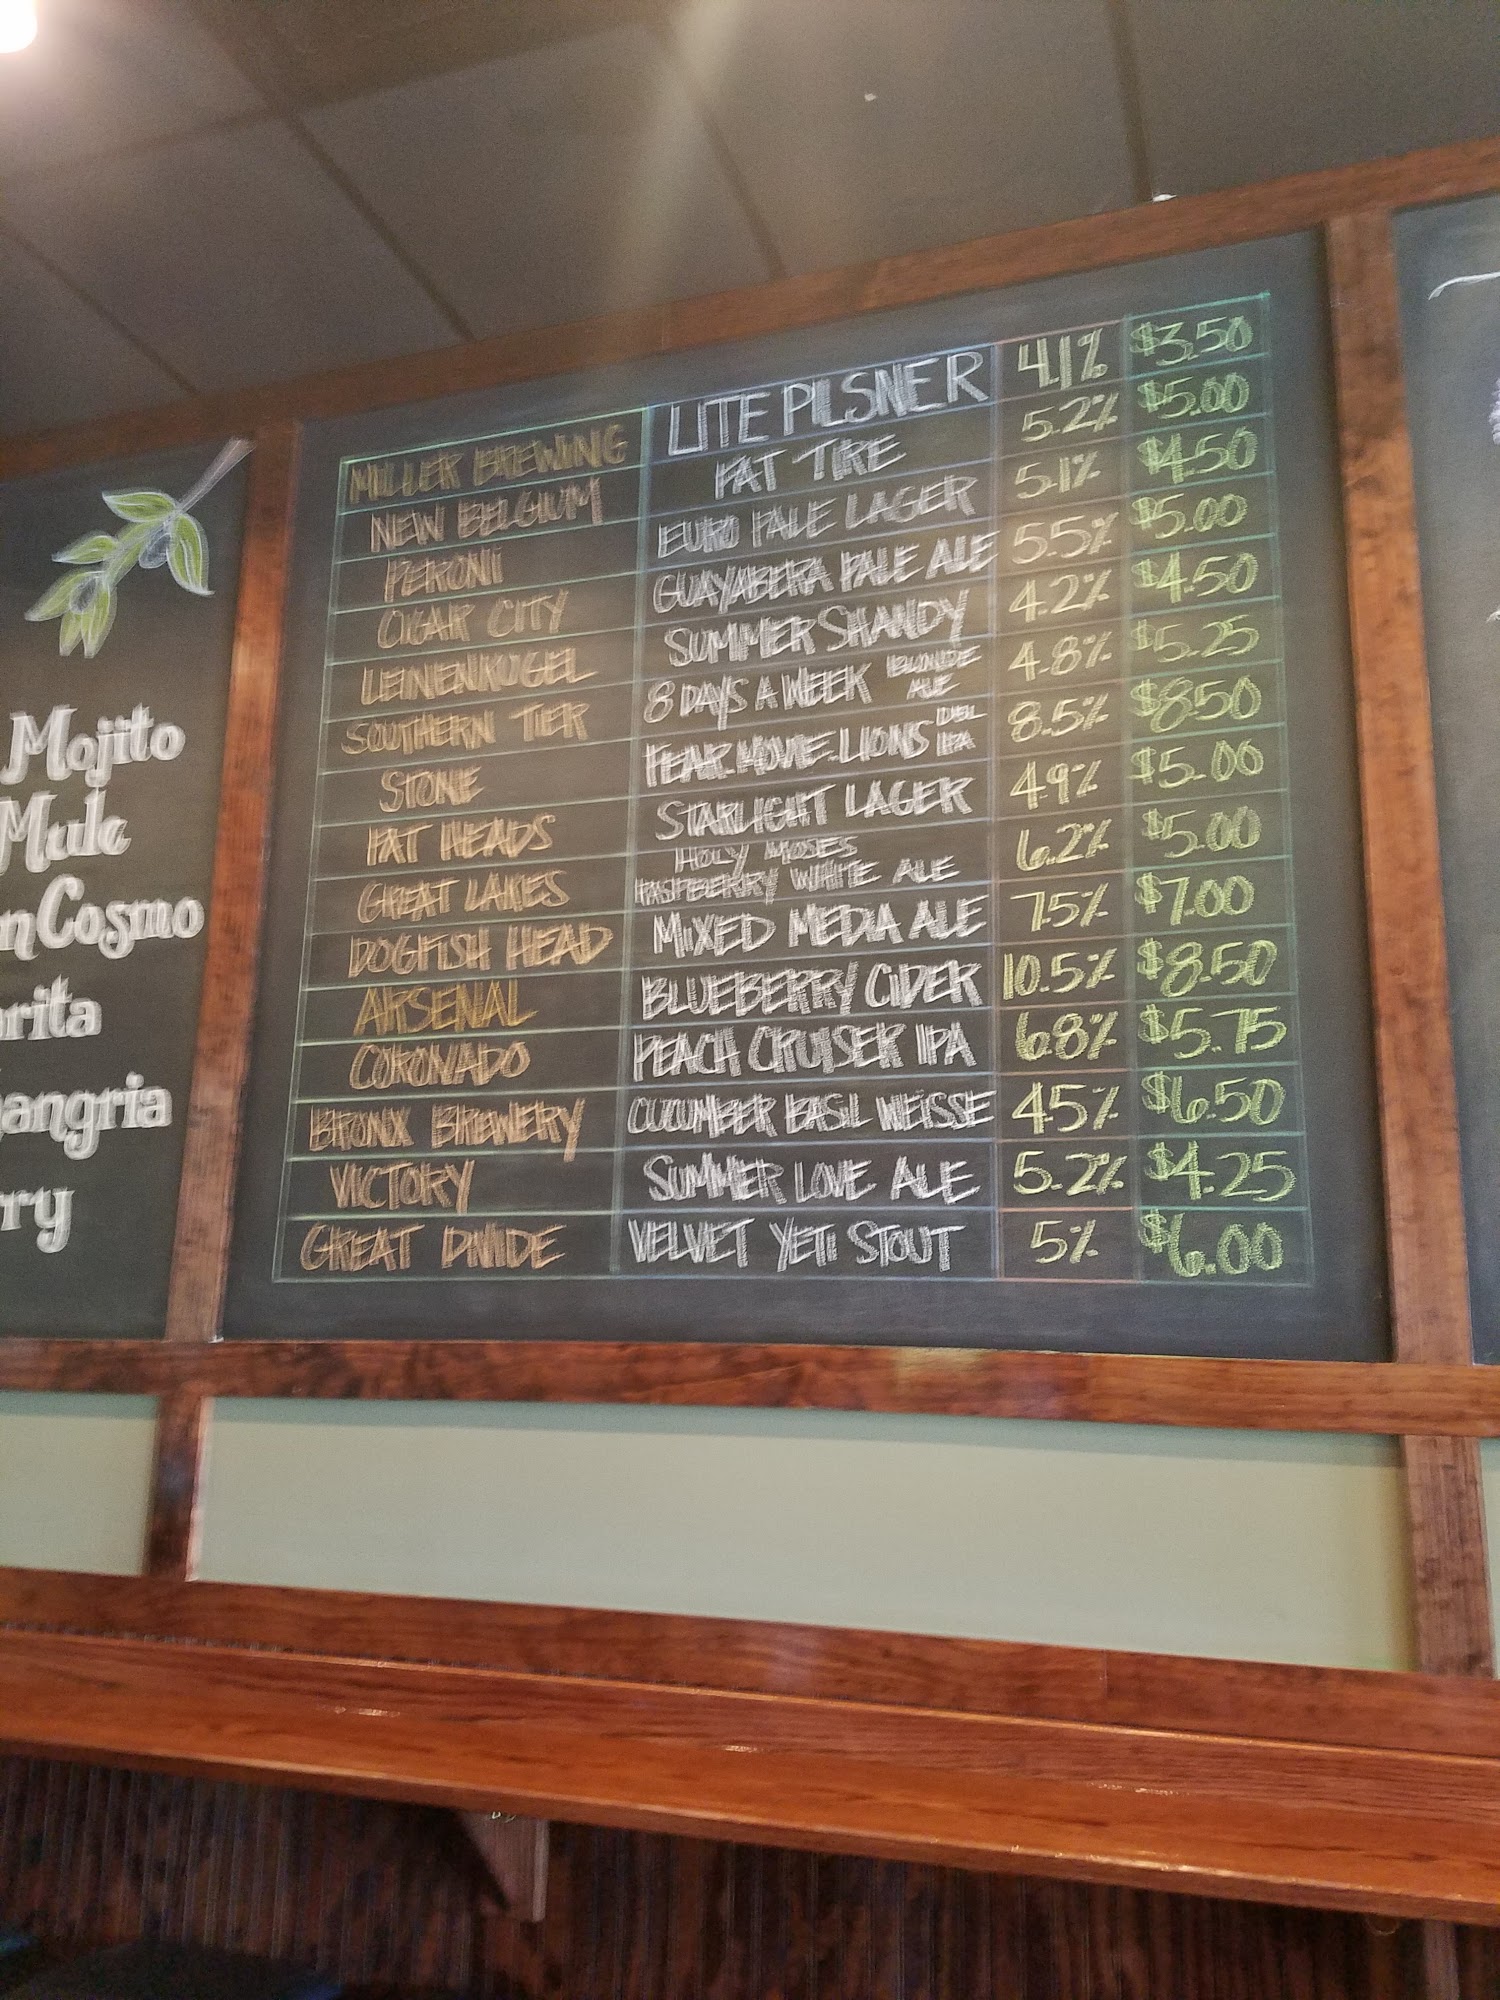 MILLER BREWING LITE PILSNER 4.1% $3.50
NEW BELGIUM FAT TIRE 5.2% $5.00
PERONI EURO PALE LAGER 5.1% $4.50
CIGAR CITY GUAYABERA PALE ALE 5.5% $5.00
LEINENKUGEL SUMMER SHANDY 4.2% $4.50
SOUTHERN TIER 8 DAYS A WEEK BLONDE ALE 4.8% $5.25
STONE FEAR.MOVIE.LIONS DBL IPA 8.5% $8.50
FAT HEADS STARLIGHT LAGER 4.9% $5.00
GREAT LAKES HOLY MOSES RASPBERRY WHITE ALE 6.2% $5.00
DOGFISH HEAD MIXED MEDIA ALE 7.5% $7.00
ARSENAL BLUEBERRY CIDER 10.5% $8.50
CORONADO PEACH CRUISER IPA 6.8% $5.75
BRONX BREWERY CUCUMBER BASIL WEISSE 4.5% $6.50
VICTORY SUMMER LOVE ALE 5.2% $4.25
GREAT DIVIDE VELVET YETI STOUT 5% $6.00
Mojito
Mule
n Cosmo
rita
angria
rry